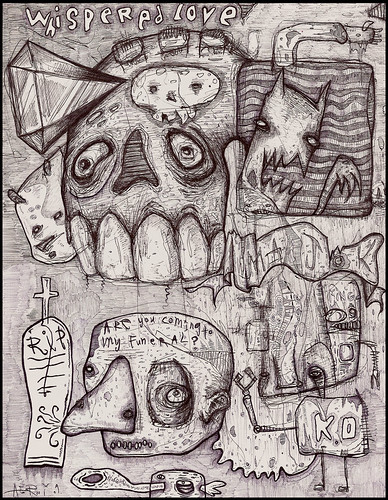 whispered love
ARE you coming to
my Funeral?
R.I.P
KO